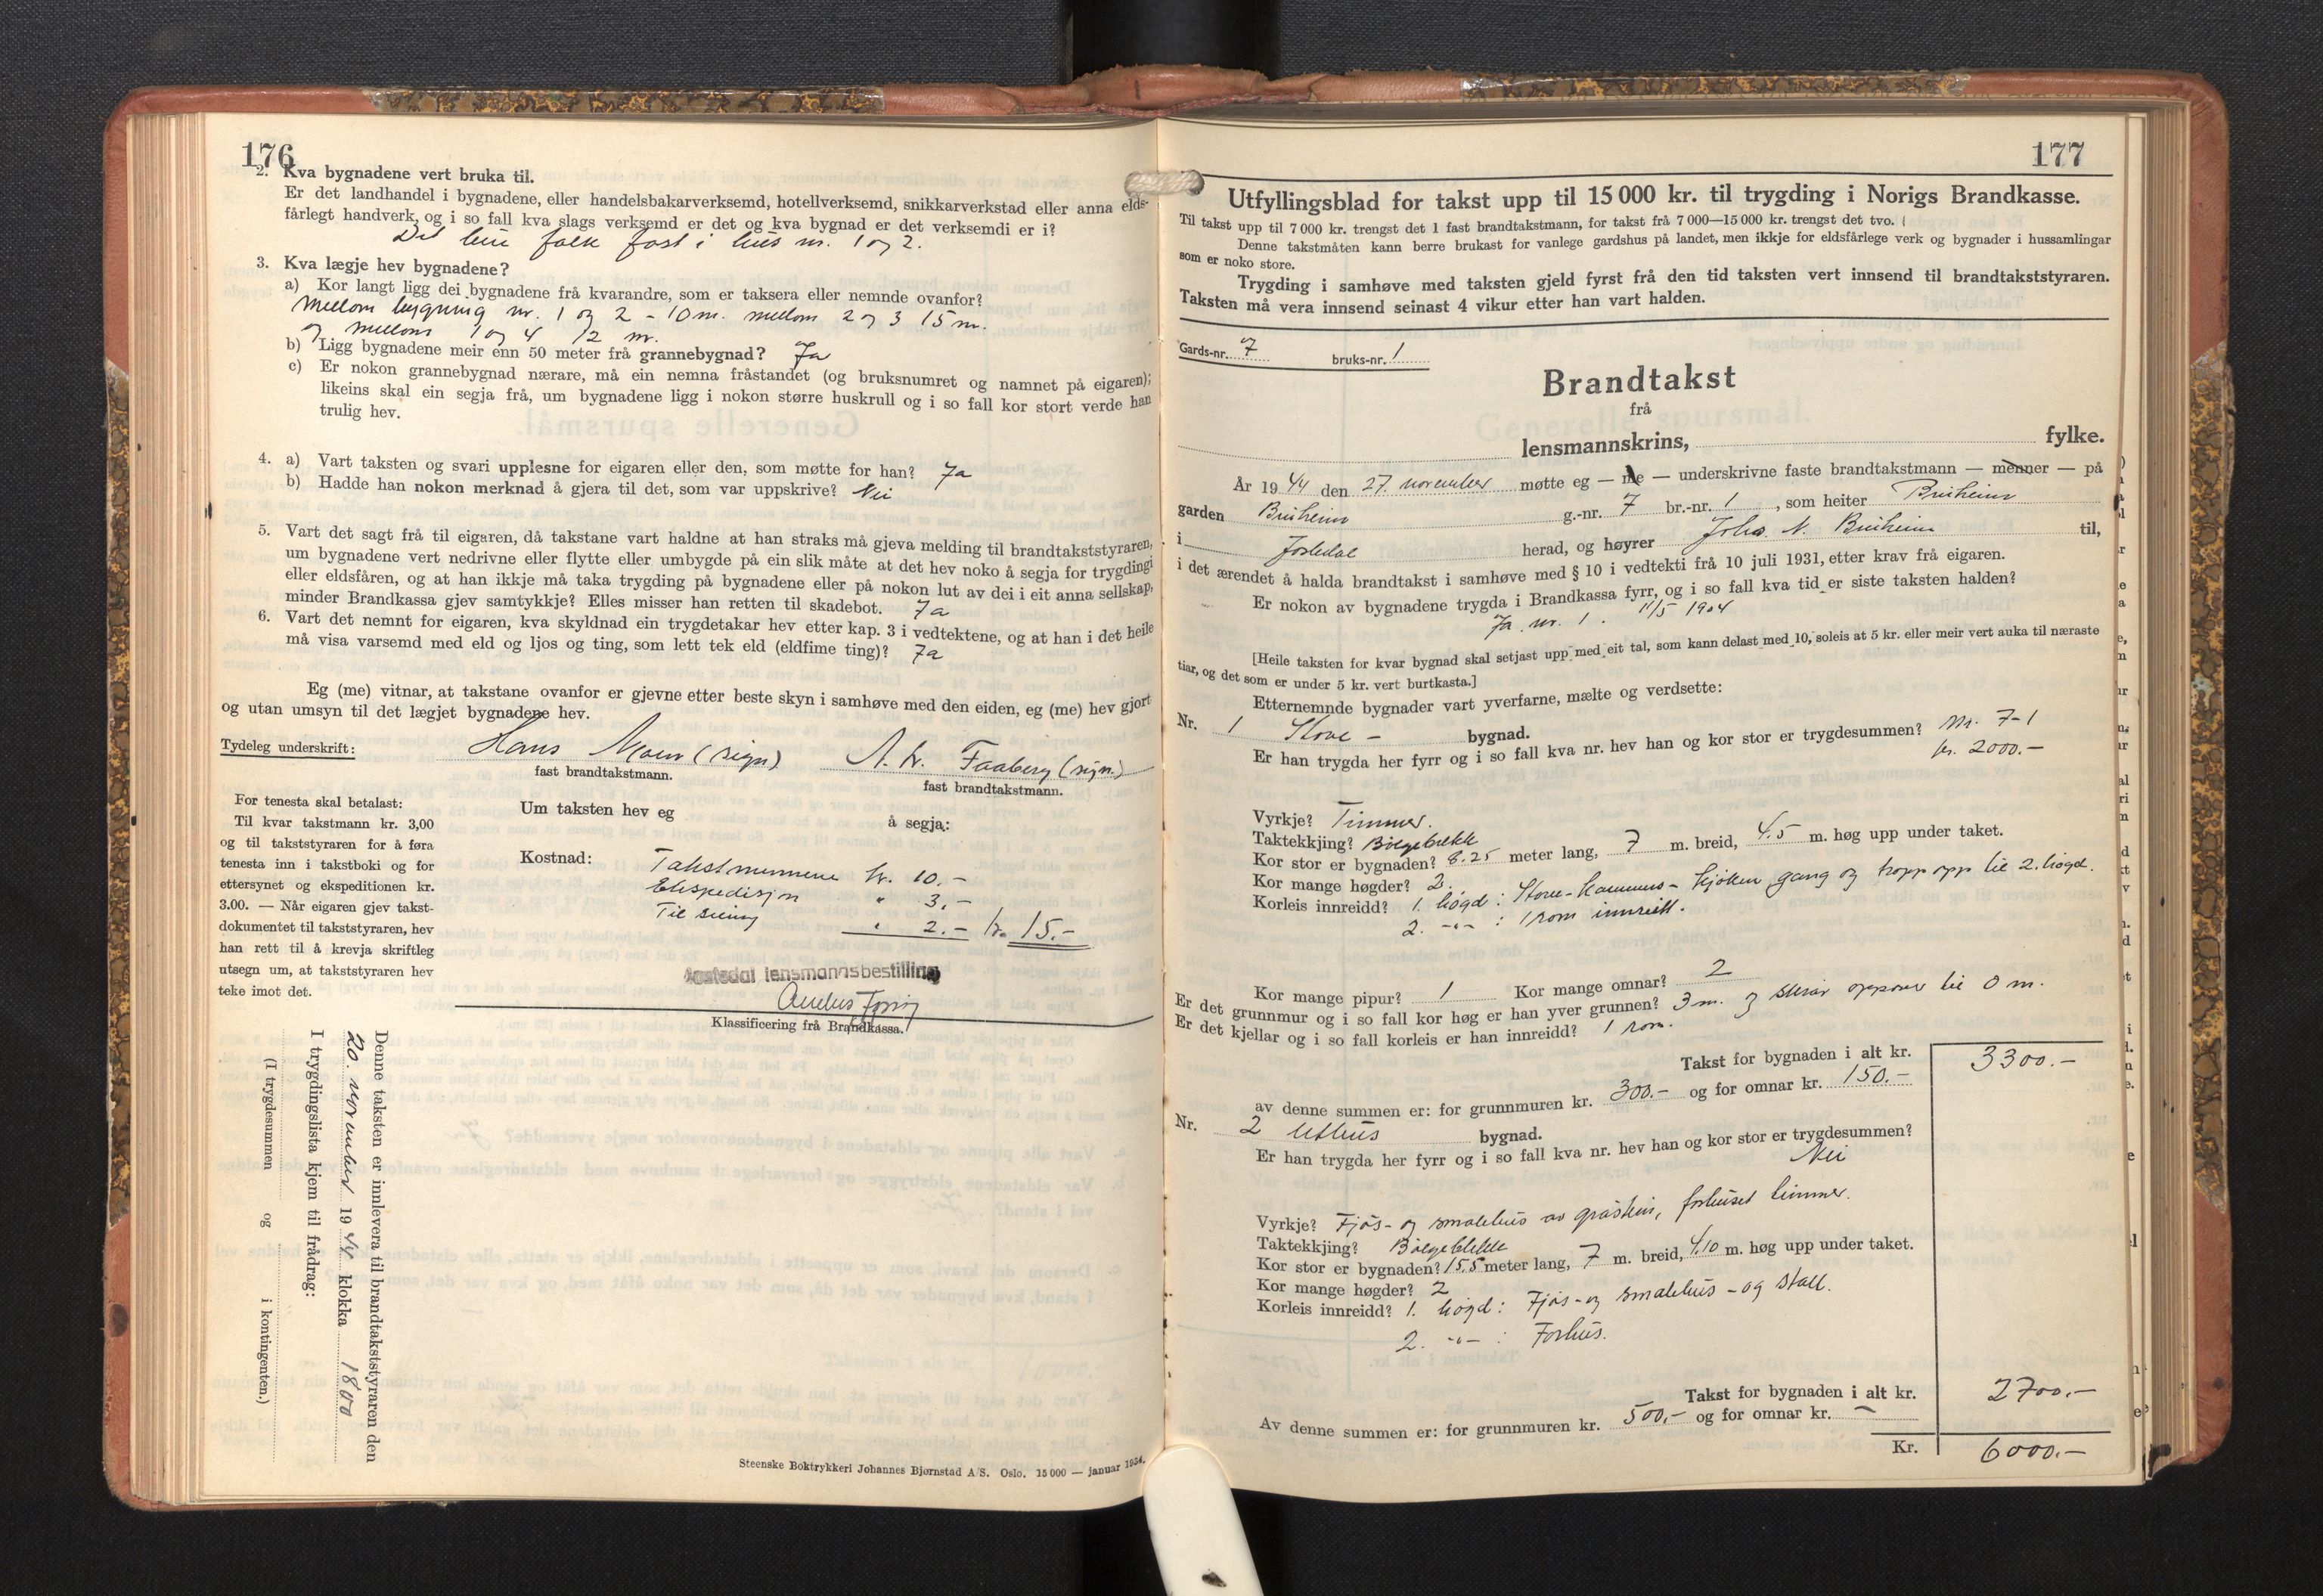 176
2. Kva bygnadene vert bruka til.
Er det landhandel i bygnadene, eller handelsbakarverksemd, hotellverksemd, snikkarverkstad eller anna elds-
fårlegt handverk, og i so fall kva slags verksemd er det og kva bygnad er det verksemdi er i?
folk fast i hus nr. 1 og 2.
3. Kva lægje hev bygnadene?
a) Kor langt ligg dei bygnadene frå kvarandre, som er taksera eller nemnde ovanfor?
Mellom bygning nr. 1 og 2 - 10 m. mellom 2 og 3 15 m.
og mellom 1 og 4 12 m.
b) Ligg bygnadene meir enn 50 meter frå grannebygnad? Ja
c) Er nokon grannebygnad nærare, må ein nemna fråstandet (og bruksnumret og namnet på eigaren);
likeins skal ein segja frå, um bygnadene ligg i nokon større huskrull og i so fall kor stort verde han
trulig hev.
4. a) Vart taksten og svari upplesne for eigaren eller den, som møtte for han? Ja
b) Hadde han nokon merknad å gjera til det, som var uppskrive? Nei
5. Vart det sagt frå til eigaren, då takstane vart haldne at han straks må gjeva melding til brandtakststyraren,
um bygnadene vert nedrivne eller flytte eller umbygde på ein slik måte at det hev noko å segja for trygdingi
eller eldsfåren, og at han ikkje må taka trygding på bygnadene eller på nokon lut av dei i eit anna sellskap,
minder Brandkassa gjev samtykkje? Elles misser han retten til skadebot. Ja
6. Vart det nemnt for eigaren, kva skyldnad ein trygdetakar hev etter kap. 3 i vedtektene, og at han i det heile
må visa varsemd med eld og ljos og ting, som lett tek eld (eldfime ting)? Ja
Eg (me) vitnar, at takstane ovanfor er gjevne etter beste skyn i samhøve med den eiden, eg (me) hev gjort
og utan umsyn til det lægjet bygnadene hev.
Tydeleg underskrift: Hans Moen (sign) A. K. Faaberg (sign.)
fast brandtakstmann. fast brandtakstmann.
For tenesta skal betalast:
Til kvar takstmann kr. 3,00
og til takststyraren for å føra
tenesta inn i takstboki og for
ettersynet og ekspeditionen kr.
3.00. — Når eigaren gjev takst-
dokumentet til takststyraren, hev
han rett til å krevja skriftleg
utsegn um, at takststyraren hev
teke imot det.
Um taksten hev eg å segja:
Kostnad: Takstmennene kr. 10.-
Ekspedisjon " 3.-
Til " 2.- kr. 15.-
Jostedal lensmannsbestilling
Klassificering frå Brandkassa.
Denne taksten er innlevera til brandtakststyraren den
20. november 1944 klokka 1800
I trygdingslista kjem til frådrag:
(I trygdesummen og i kontingenten.)
Steenske Boktrykkeri Johannes Bjørnstad A/S. Oslo. 15 000 — januar 1934.
177
Utfyllingsblad for takst upp til 15 000 kr. til trygding i Norigs Brandkasse.
Til takst upp til 7 000 kr. trengst det 1 fast brandtakstmann, for takst frå 7 000—15 000 kr. trengst det tvo.
Denne takstmåten kann berre brukast for vanlege gardshus på landet, men ikkje for eldsfårlege verk og bygnader i hussamlingar
som er noko store.
Trygding i samhøve med taksten gjeld fyrst frå den tid taksten vert innsend til brandtakststyraren.
Taksten må vera innsend seinast 4 vikur etter han vart halden.
Gards-nr. 7 bruks-nr. 1
Brandtakst
frå
lensmannskrins, fylke.
År 1944 den 27. november møtte eg — me — underskrivne faste brandtakstmann — menner — på
garden Bruheim g.-nr. 7 br.-nr. 1, som heiter Bruheim
i Jostedal herad, og høyrer Johs. N. Bruheim til,
i det ærendet å halda brandtakst i samhøve med § 10 i vedtekti frå 10 juli 1931, etter krav frå eigaren.
Er nokon av bygnadene trygda i Brandkassa fyrr, og i so fall kva tid er siste taksten halden?
Ja nr. 1. 11/5 1904
[Heile taksten for kvar bygnad skal setjast upp med eit tal, som kann delast med 10, soleis at 5 kr. eller meir vert auka til næraste
tiar, og det som er under 5 kr. vert burtkasta.]
Etternemnde bygnader vart yverfarne, mælte og verdsette:
Nr. 1 Stove- bygnad.
Er han trygda her fyrr og i so fall kva nr. hev han og kor stor er trygdesummen? Nr. 7-1
kr. 2000.-
Vyrkje? Timmer.
Taktekkjing? Bølgeblekk
Kor stor er bygnaden? 8.25 meter lang, 7 m. breid, 4.5 m. høg upp under taket.
Kor mange høgder? 2.
Korleis innreidd? 1. høgd: Stove- kammers- kjøken gang og tropp opp til 2. høgd.
2. -"- : 1 rom innreidt.
Kor mange pipur? 1 Kor mange omnar? 2
Er det grunnmur og i so fall kor høg er han yver grunnen? 3 m. og skrår oppover til 0 m.
Er det kjellar og i so fall korleis er han innreidd? 1 rom.
Takst for bygnaden i alt kr. 3300.-
av denne summen er: for grunnmuren kr. 300.- og for omnar kr. 150.-
Nr. 2 Uthus bygnad.
Er han trygda her fyrr og i so fall kva nr. hev han og kor stor er trygdesummen?
Nei
Vyrkje? Fjøs- og smalehus av gråstein, forhuset timmer.
Taktekkjing? Bølgeblekk
Kor stor er bygnaden? 15.5 meter lang, 7 m. breid, 4.10 m. høg upp under taket.
Kor mange høgder? 2
Korleis innreidd? 1. høgd: Fjøs- og smalehus - og stall.
2. -"- : Forhus.
Takst for bygnaden i alt kr. 2700.-
Av denne summen er: for grunnmuren kr. 500.- og for omnar kr. -
Kr. 6000.-